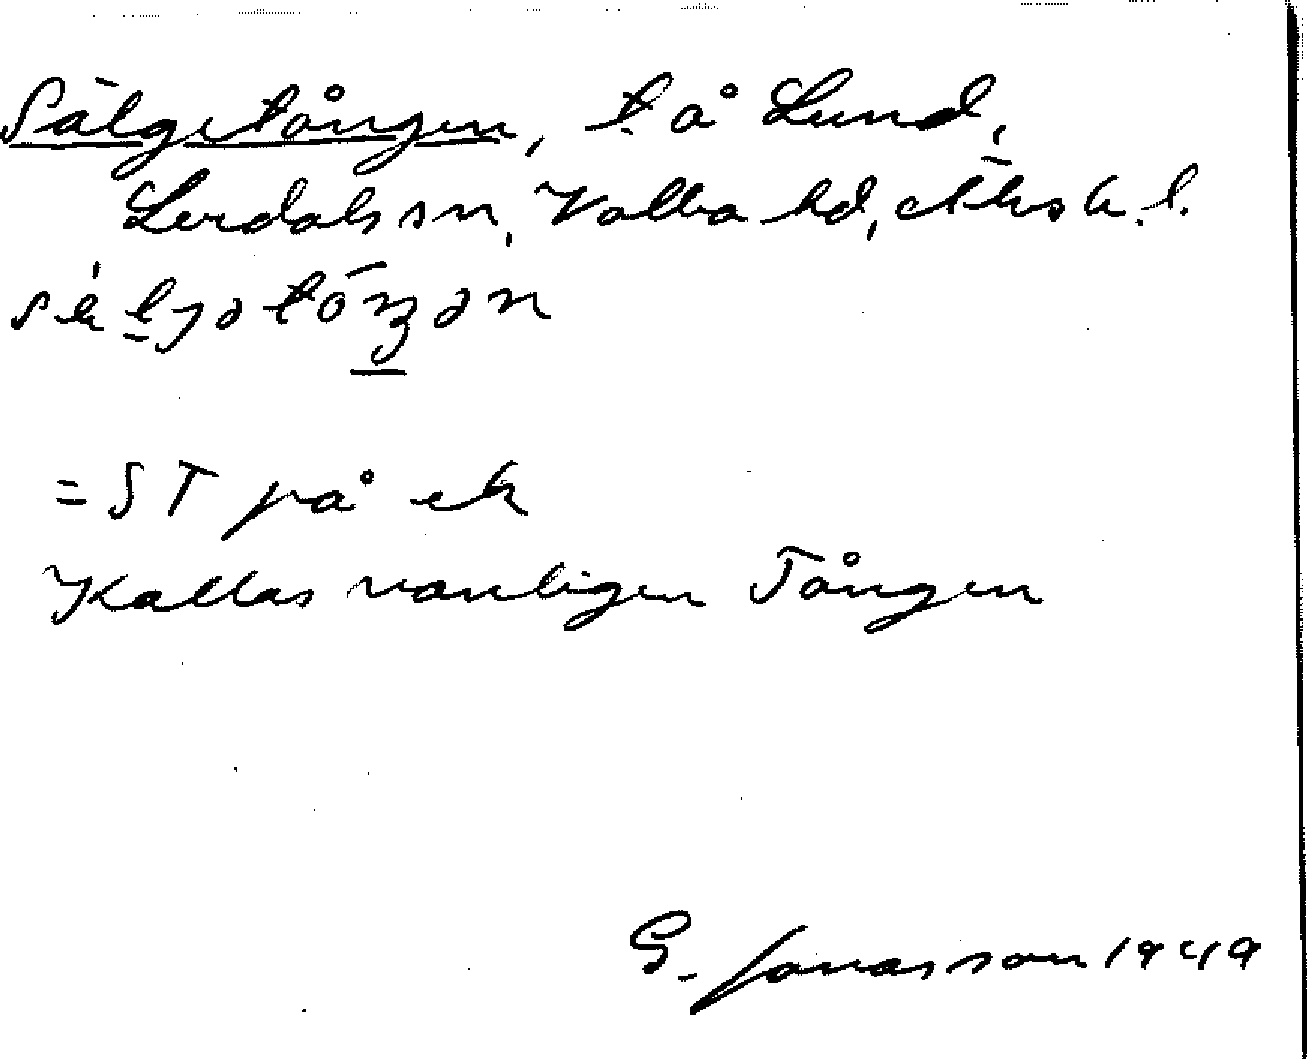 Sälgetången, t å Lund,
Lerdals sn, Valbo hd, Älvsb. l.
= ST på ek
Kallas vanligen Tången
G. Jonasson 1949